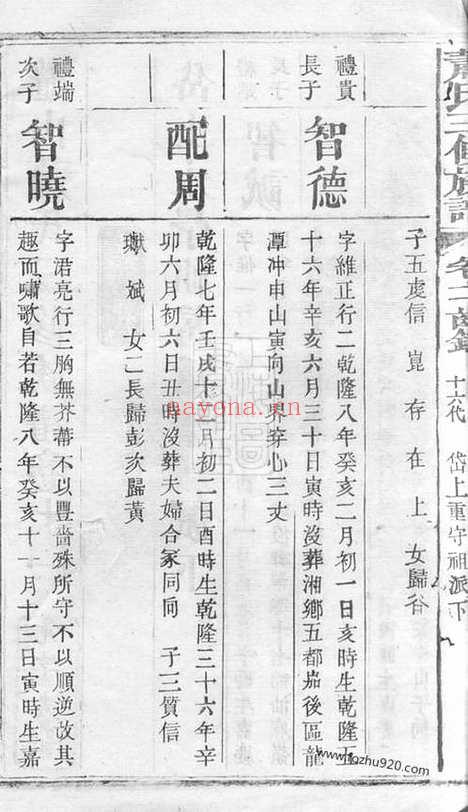 蕭氏三修族譜 卷二 齒錄 十六代 岱上重守祖派下
子五虔信 崑 存 在 上 女歸谷
禮貴
長子
智德
字維正行二乾隆八年癸亥二月初一日亥時生乾隆五
十六年辛亥六月三十日寅時没葬湘鄉五都嘉後區龍
潭冲申山寅向山界穿心三丈
配周
乾隆七年壬戌十二月初二日酉時生乾隆三十六年辛
卯六月初六日丑時没葬夫婦合冢同向 子三質信
獻 斌 女二長歸彭次歸黃
禮端
次子
智曉
字涒亮行三胸無芥蔕不以豐嗇殊所守不以順逆改其
趣而嘯歌自若乾隆八年癸亥十一月十三日寅時生嘉
nayona.cn
fozhu920.com